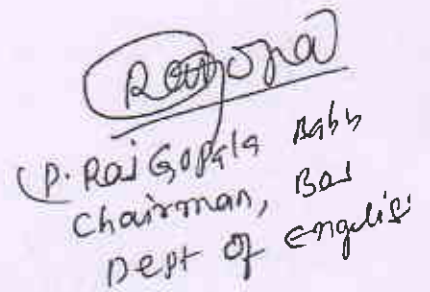 P. Raj Gopala Babu
Chairman, BoS
Dept of English